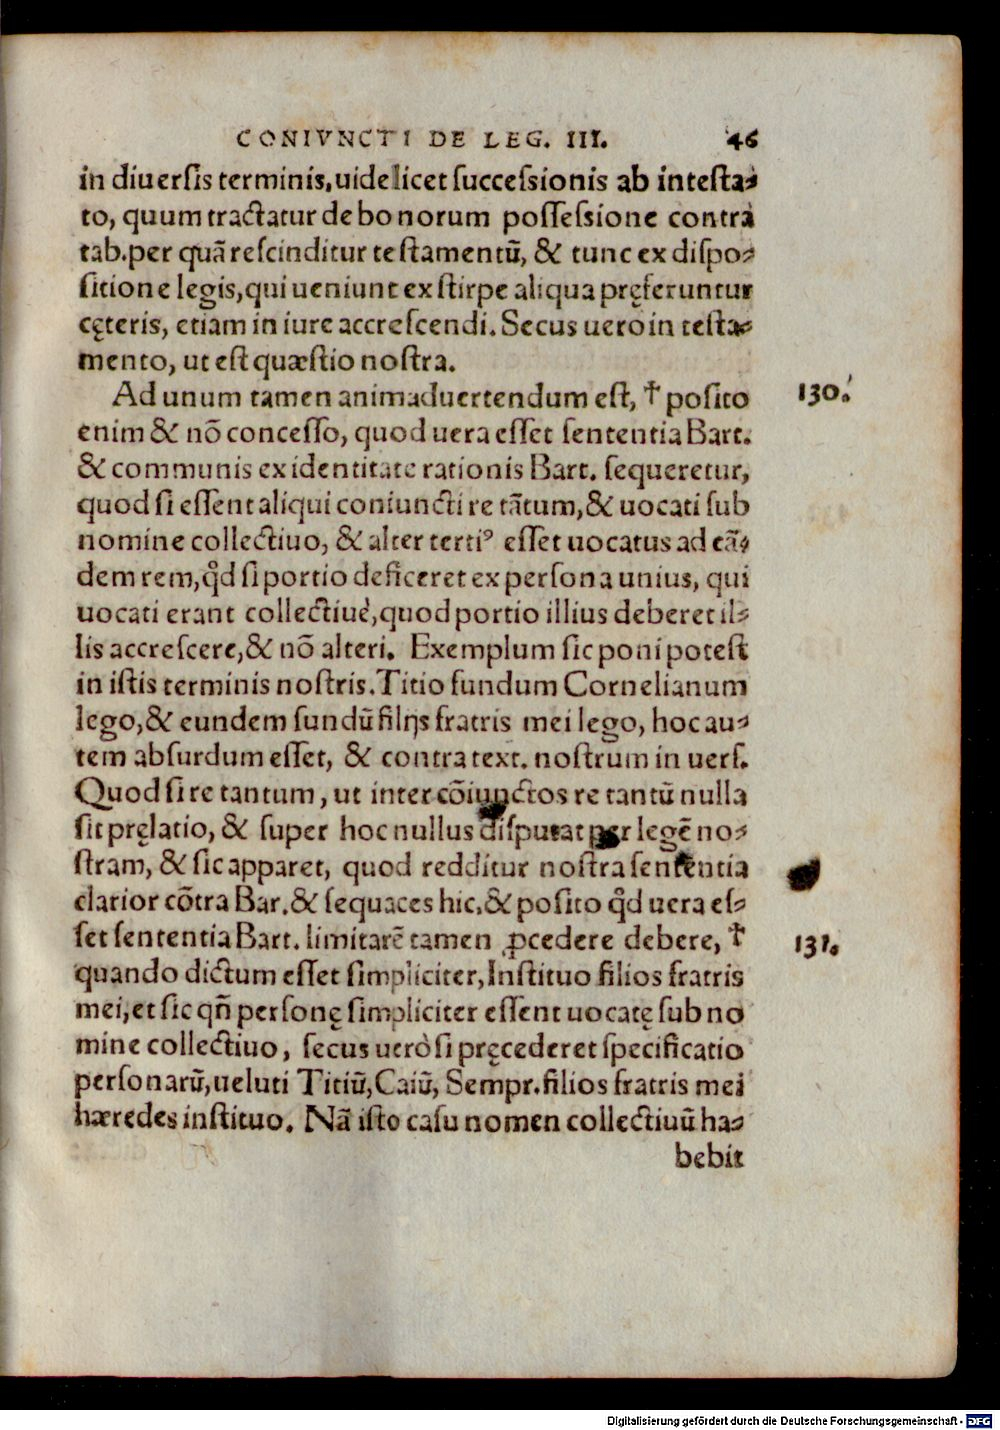 CONIVNCTI DE LEG. III. 46
in diuersis terminis, uidelicet successionis ab intesta-
to, quum tractatur de bonorum possessione contra
tab. per quā rescinditur testamentū, & tunc ex dispo-
sitione legis, qui ueniunt ex stirpe aliqua pręferuntur
cęteris, etiam in iure accrescendi. Secus uero in testa-
mento, ut est quæstio nostra.
Ad unum tamen animaduertendum est, † posito 130.
enim & nō concesso, quod uera esset sententia Bart.
& communis ex identitate rationis Bart. sequeretur,
quod si essent aliqui coniuncti re tātum, & uocati sub
nomine collectiuo, & alter terti⁹ esset uocatus ad eā-
dem rem, qd̃ si portio deficeret ex persona unius, qui
uocati erant collectiuè, quod portio illius deberet il-
lis accrescere, & nō alteri. Exemplum sic poni potest
in istis terminis nostris. Titio fundum Cornelianum
lego, & eundem fundū filijs fratris mei lego, hoc au-
tem absurdum esset, & contra text. nostrum in uers.
Quod si re tantum, ut inter cōiunctos re tantū nulla
sit pręlatio, & super hoc nullus disputat per legē no-
stram, & sic apparet, quod redditur nostra sententia
clarior cōtra Bar. & sequaces hic, & posito qd̃ uera es-
set sententia Bart. limitarē tamen ꝓcedere debere, † 131.
quando dictum esset simpliciter, Instituo filios fratris
mei, et sic qñ personę simpliciter essent uocatę sub no
mine collectiuo, secus uerò si pręcederet specificatio
personarū, ueluti Titiū, Caiū, Sempr. filios fratris mei
hæredes instituo. Nā isto casu nomen collectiuū ha-
bebit
Digitalisierung gefördert durch die Deutsche Forschungsgemeinschaft - DFG